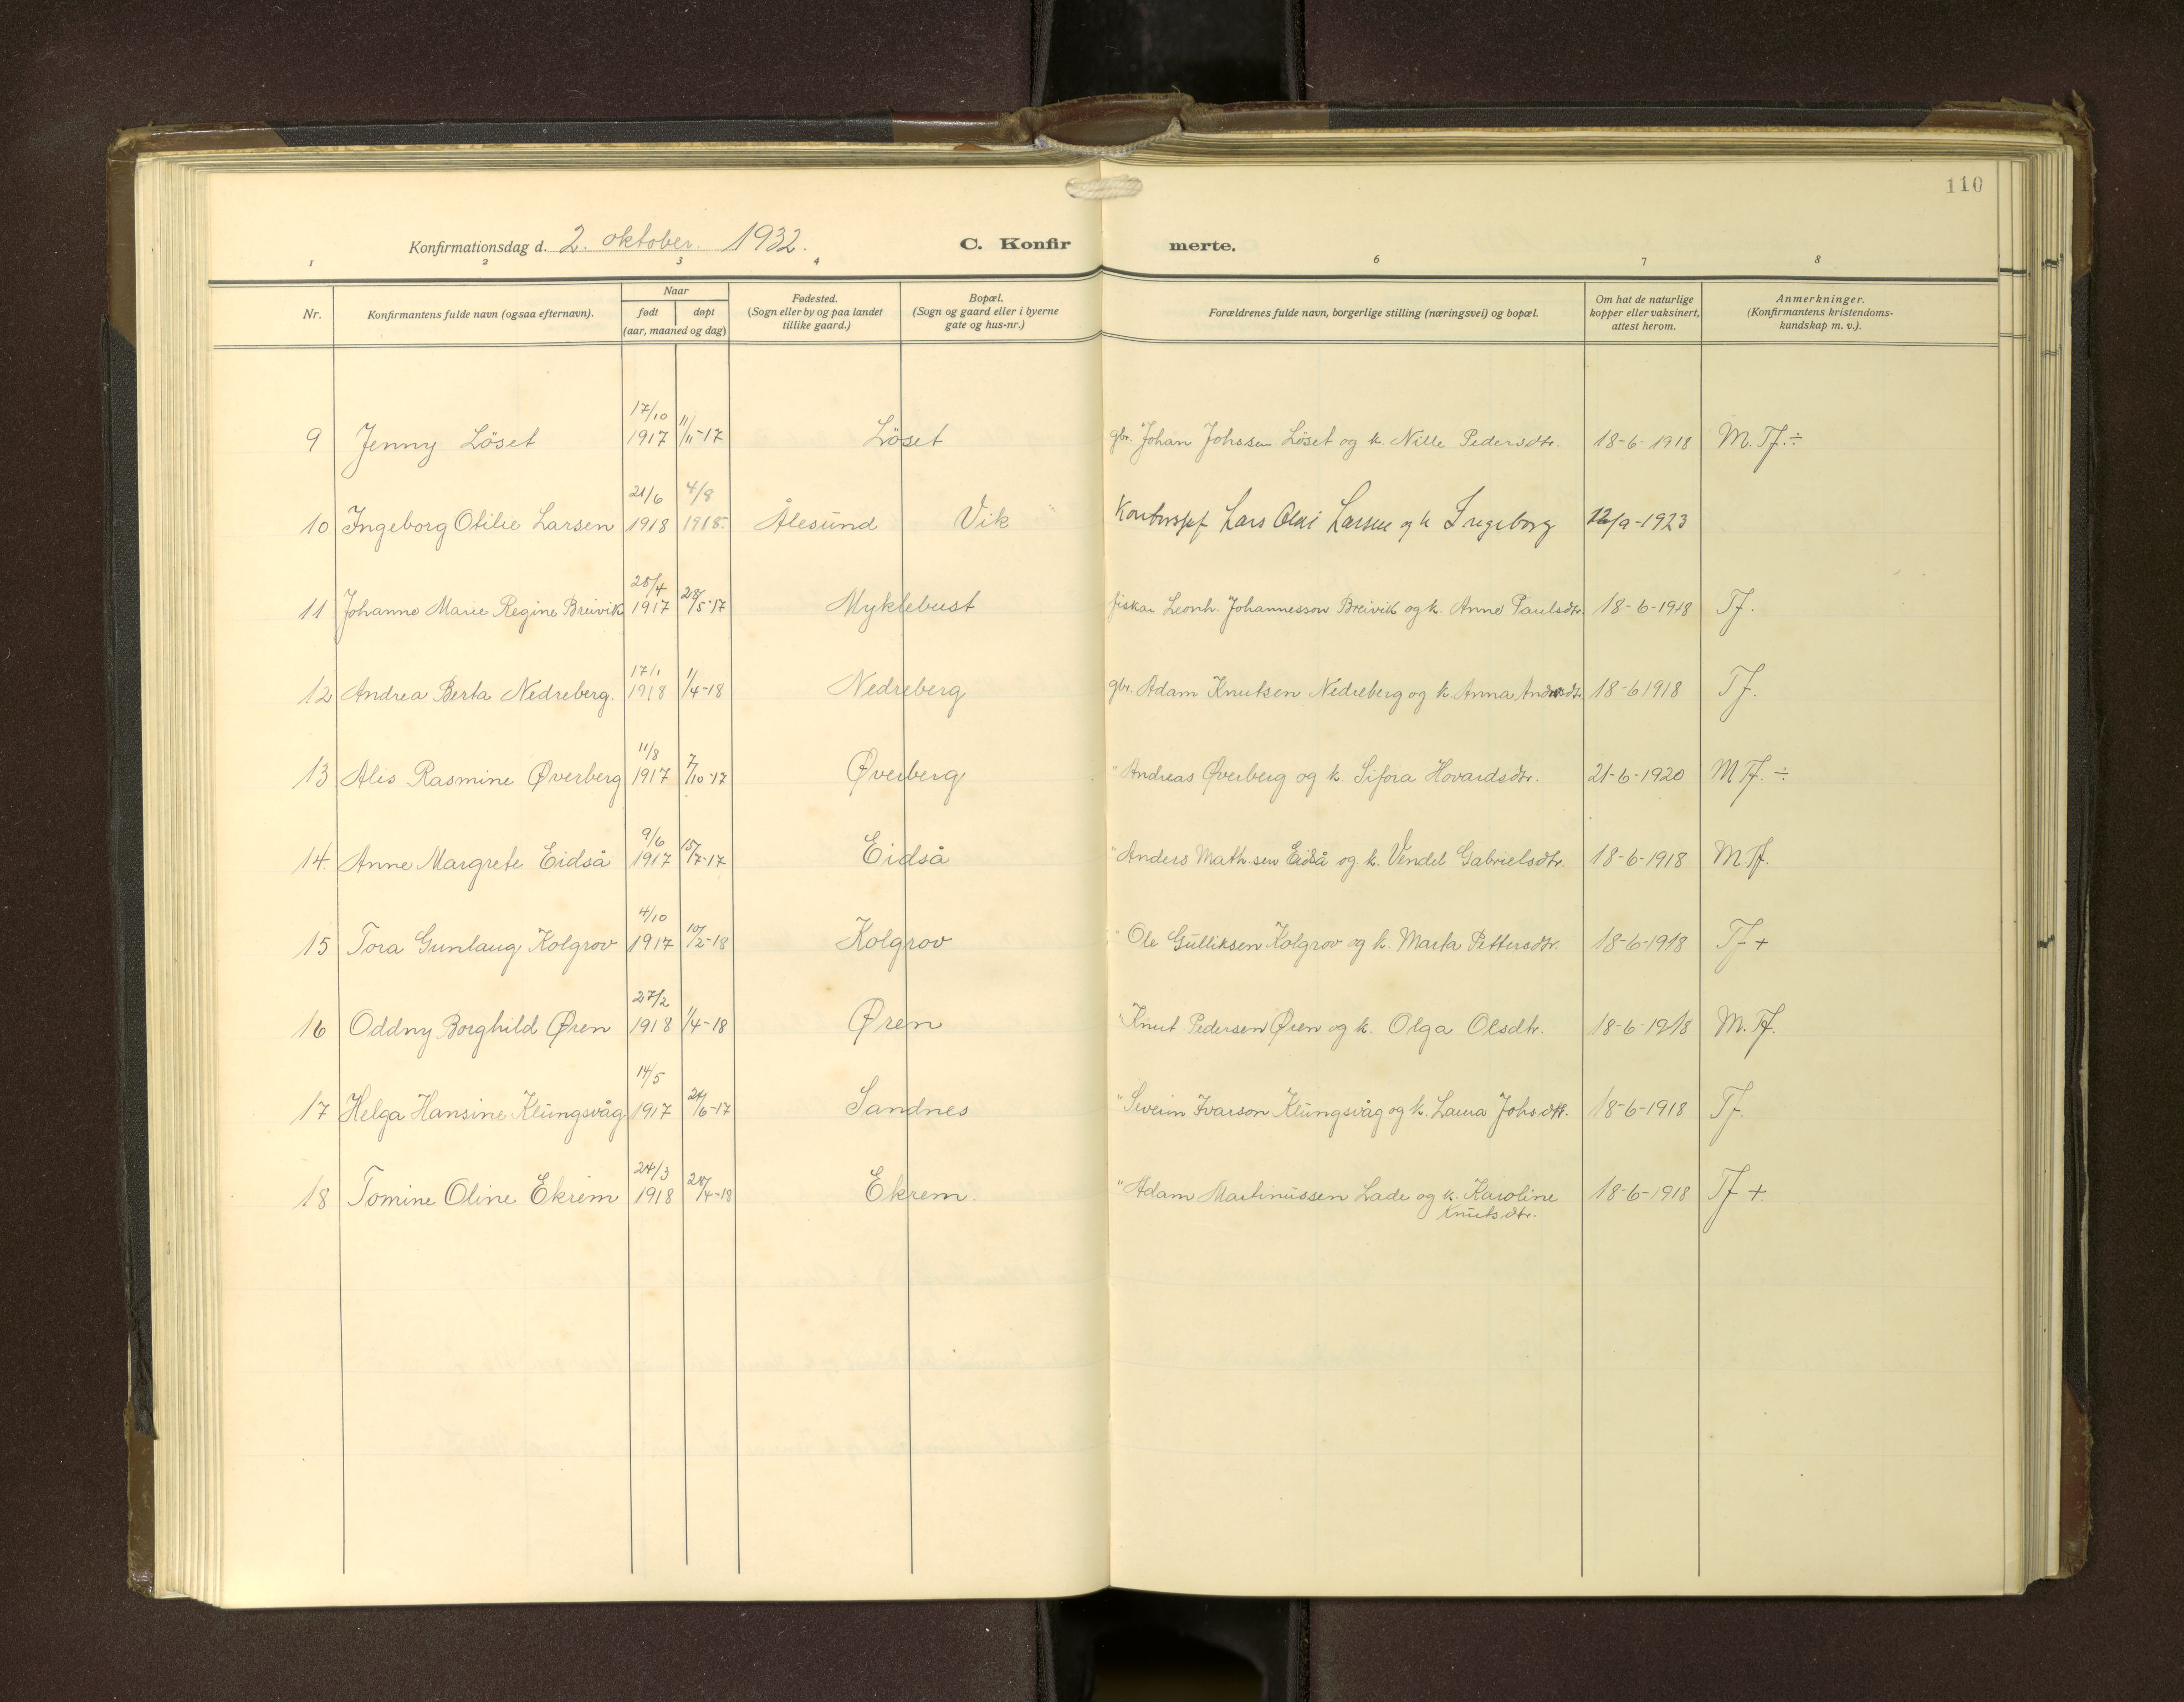 110
Konfirmationsdag d. 2. oktober 1932. C. Konfir merte.
1 2 3 4 6 7 8
Nr.
Konfirmantens fulde navn (ogsaa efternavn).
Naar
født døpt
(aar, maaned og dag)
Fødested.
(Sogn eller by og paa landet
tillike gaard.)
Bopæl.
(Sogn og gaard eller i byerne
gate og hus-nr.)
Forældrenes fulde navn, borgerlige stilling (næringsvei) og bopæl.
Om hat de naturlige
kopper eller vaksinert,
attest herom.
Anmerkninger.
(Konfirmantens kristendoms-
kundskap m. v.).
17/10
9 Jenny Löset 1917 11/11-17 Löset gbr. Johan Johssen Löset og k. Nille Pedersdtr. 18-6-1918 M. Tf. ÷
21/6 4/8
10 Ingeborg Otilie Larsen 1918 1918. Ålesund Vik Lars Olai Larsen og k Ingeborg 12/9-1923
25/4
11 Johanne Marie Regine Breivik 1917 28/5-17 Myklebust fiskar Leonh. Johannesson Breivik og k. Anne Paulsdtr. 18-6-1918 Tf.
17/1
12 Andrea Berta Nedreberg. 1918 1/4-18 Nedreberg gbr. Adam Knutsen Nedreberg og k. Anna Andersdtr. 18-6 1918 Tf.
11/8
13 Alis Rasmine Øverberg 1917 7/10-17 Øverberg " Andreas Øverberg og k. Sifora Hovardsdtr. 21-6-1920 M Tf. ÷
9/6
14. Anne Margrete Eidså 1917 15/7-17 Eidså " Anders Math.sen Eidså og k. Vendel Gabrielsdtr. 18-6-1918 M. Tf.
4/10
15 Tora Gunlaug Kolgrov 1917 10/2-18 Kolgrov " Ole Gulliksen Kolgrov og k. Marta Pettersdtr. 18-6-1918 Tf +
27/2
16 Oddny Borghild Øren 1918 1/4-18 Øren " Knut Pedersen Øren og k. Olga Olsdtr. 18-6-1918 M. Tf.
14/5
17 Helga Hansine Klungsvåg 1917 24/6-17 Sandnes " Severin Ivarson Klungsvåg og k. Laura Johsdtr. 18-6-1918 Tf.
24/3
18 Tomine Oline Ekrem 1918 28/4-18 Ekrem. " Adam Martinussen Lade og k. Karoline 18-6-1918 Tf +.
Knutsdtr.